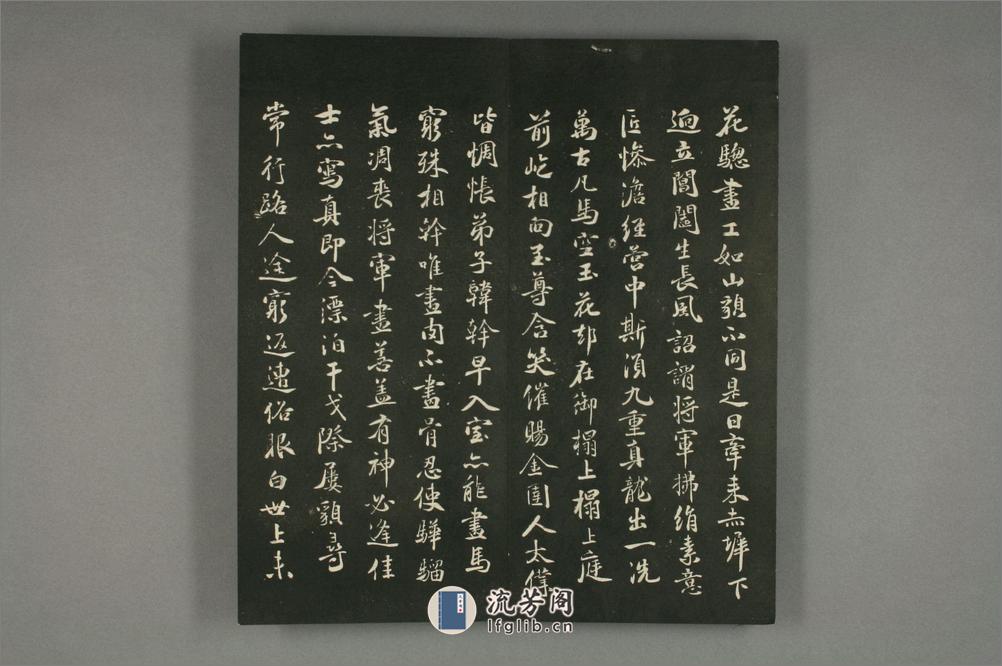 花驄畫工如山貌不同是日牽来赤墀下
迥立閶闔生長風詔謂将軍拂絹素意
匠惨澹經營中斯湏九重真龍出一洗
萬古凡馬空玉花却在御榻上榻上庭
前屹相向至尊含笑催賜金圉人太僕
皆惆悵弟子韓幹早入室亦能畫馬
窮殊相幹唯畫肉不畫骨忍使驊騮
氣凋喪将軍畫善盖有神必逢佳
士亦寫真即今漂泊干戈際屢貌尋
常行路人途窮返遭俗眼白世上未
流芳阁
lfglib.cn